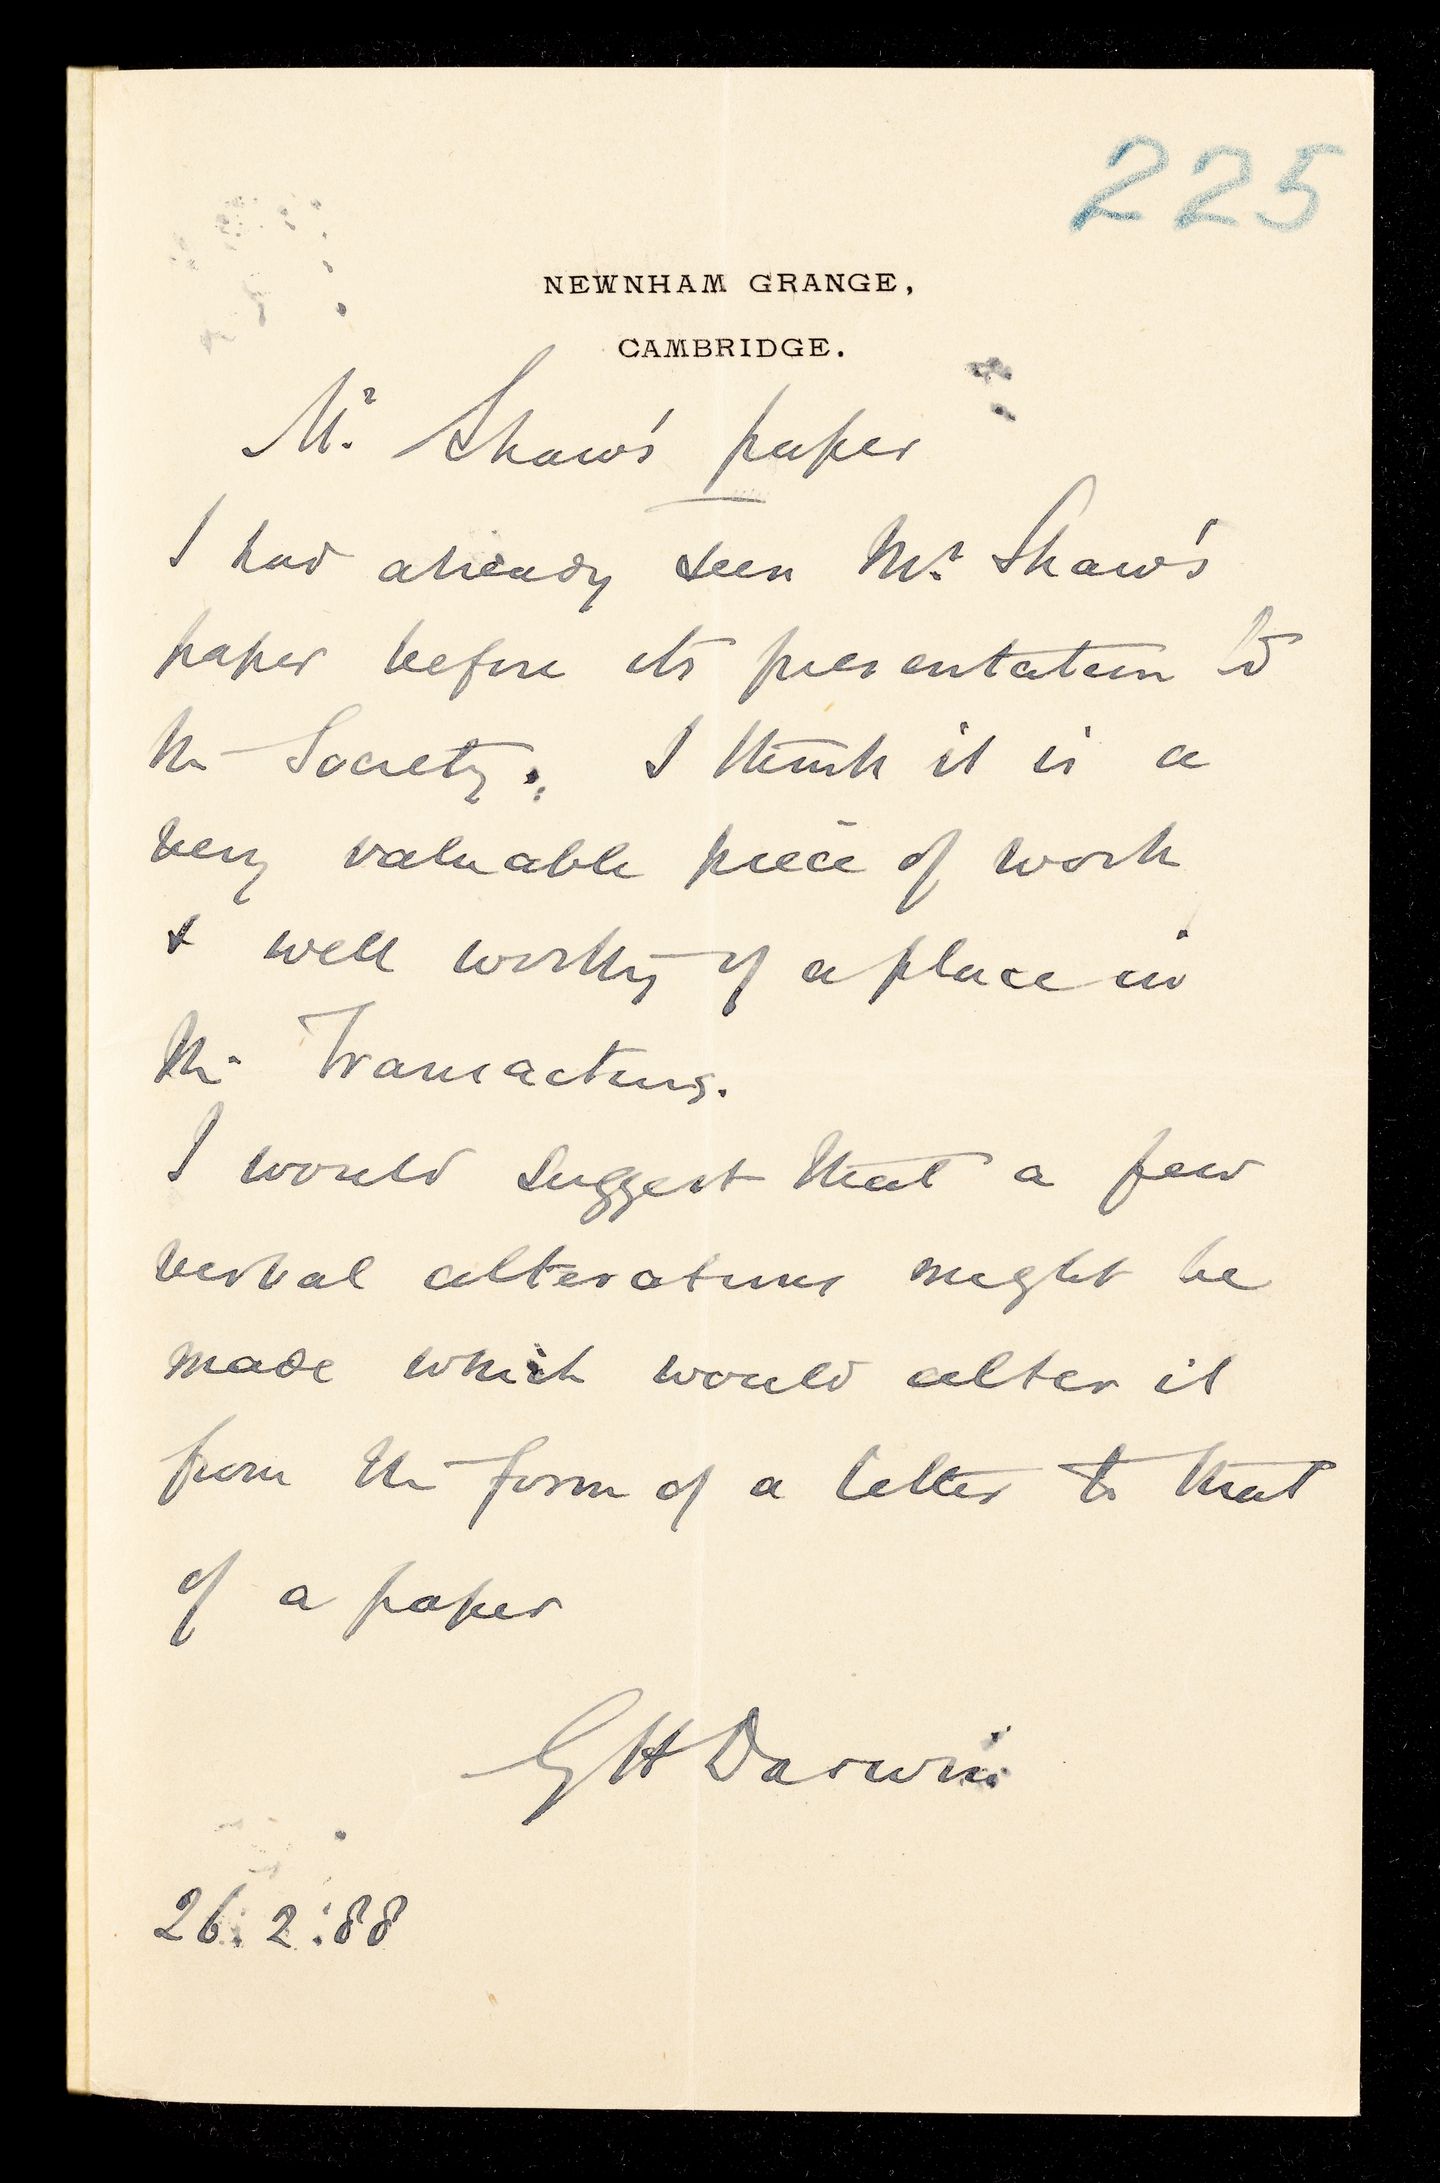 225
NEWNHAM GRANGE,
CAMBRIDGE.
Mr. Shaw's paper
I had already seen Mr. Shaw's
paper before its presentation to
the Society. I think it is a
very valuable piece of work
& well worthy of a place in
the Transactions.
I would suggest that a few
verbal alterations might be
made which would alter it
from the form of a letter to that
of a paper
G H Darwin
26.2.88